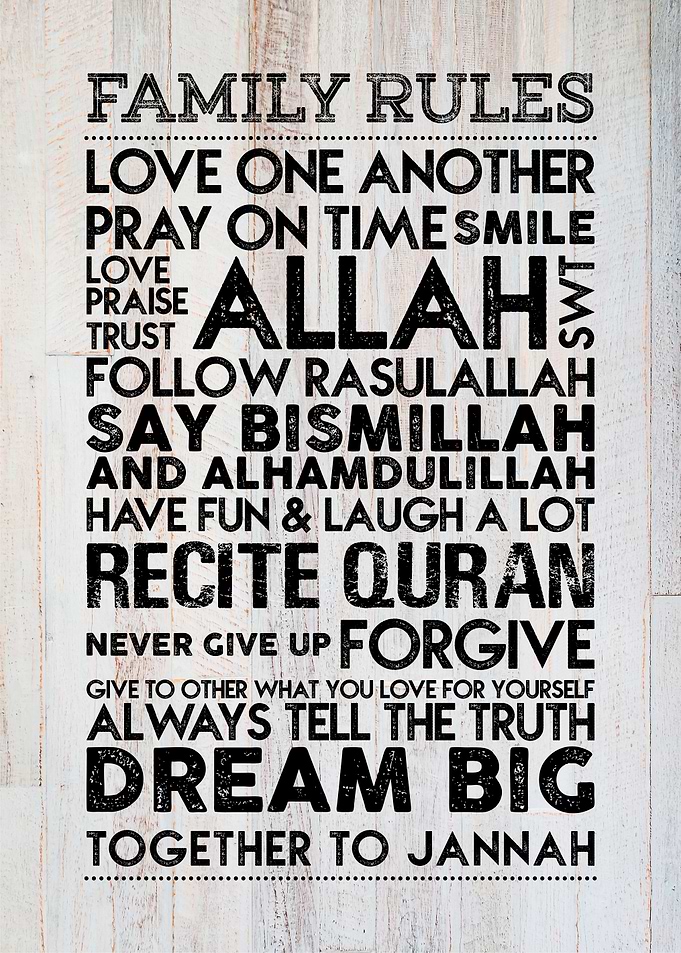 FAMILY RULES
LOVE ONE ANOTHER
PRAY ON TIME SMILE
LOVE
PRAISE
TRUST
ALLAH SWT
FOLLOW RASULALLAH
SAY BISMILLAH
AND ALHAMDULILLAH
HAVE FUN & LAUGH A LOT
RECITE QURAN
NEVER GIVE UP FORGIVE
GIVE TO OTHER WHAT YOU LOVE FOR YOURSELF
ALWAYS TELL THE TRUTH
DREAM BIG
TOGETHER TO JANNAH